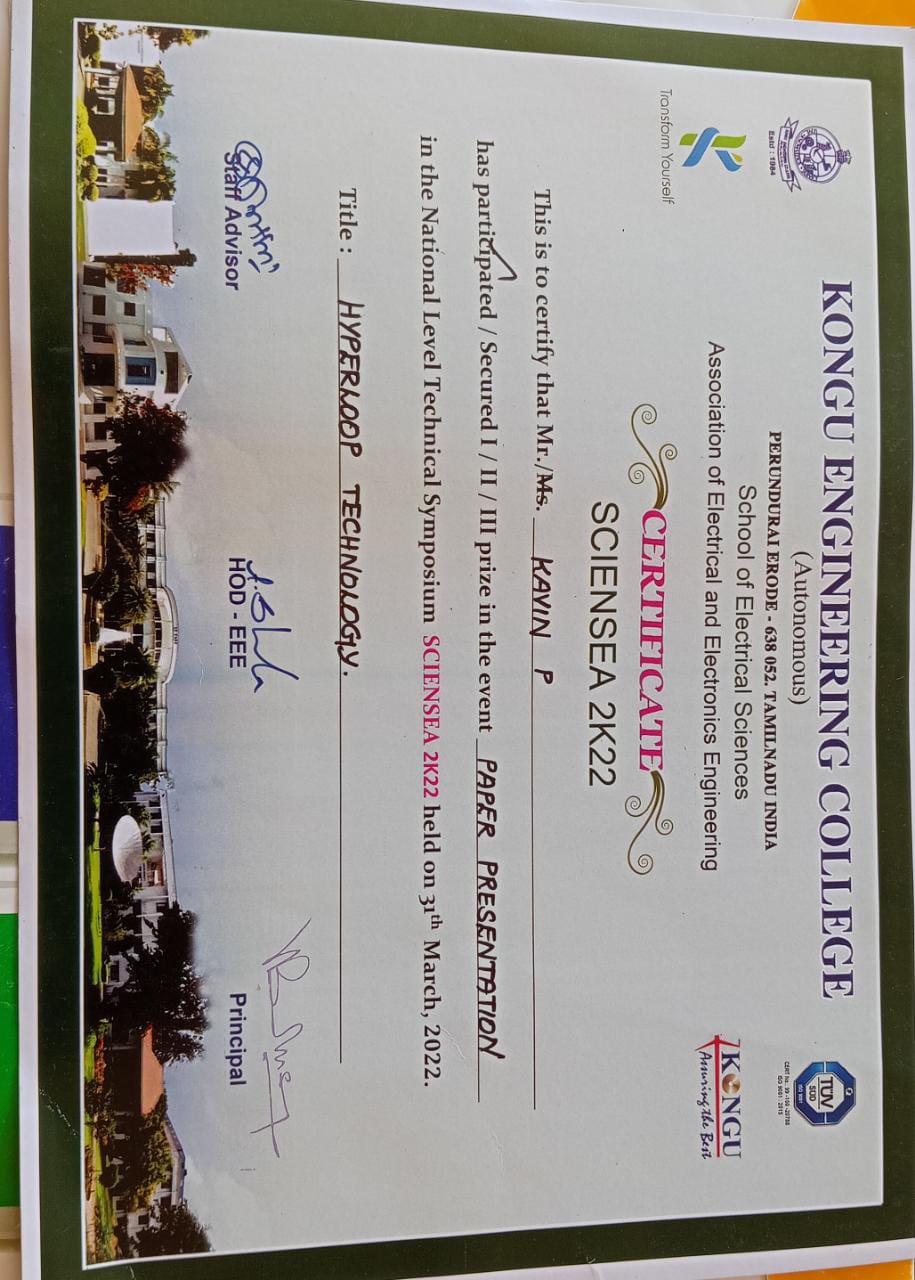 KONGU ENGINEERING COLLEGE
(Autonomous)
PERUNDURAI ERODE - 638 052. TAMILNADU INDIA
School of Electrical Sciences
Association of Electrical and Electronics Engineering
Estd : 1984
Transform Yourself
TÜV
SÜD
ISO 9001
ISO 9001 : 2015
KONGU
Assuring the Best
CERTIFICATE
SCIENSEA 2K22
This is to certify that Mr./Ms. KAVIN P
has participated / Secured I / II / III prize in the event PAPER PRESENTATION
in the National Level Technical Symposium SCIENSEA 2K22 held on 31th March, 2022.
Title : HYPERLOOP TECHNOLOGY.
Staff Advisor
HOD - EEE
Principal